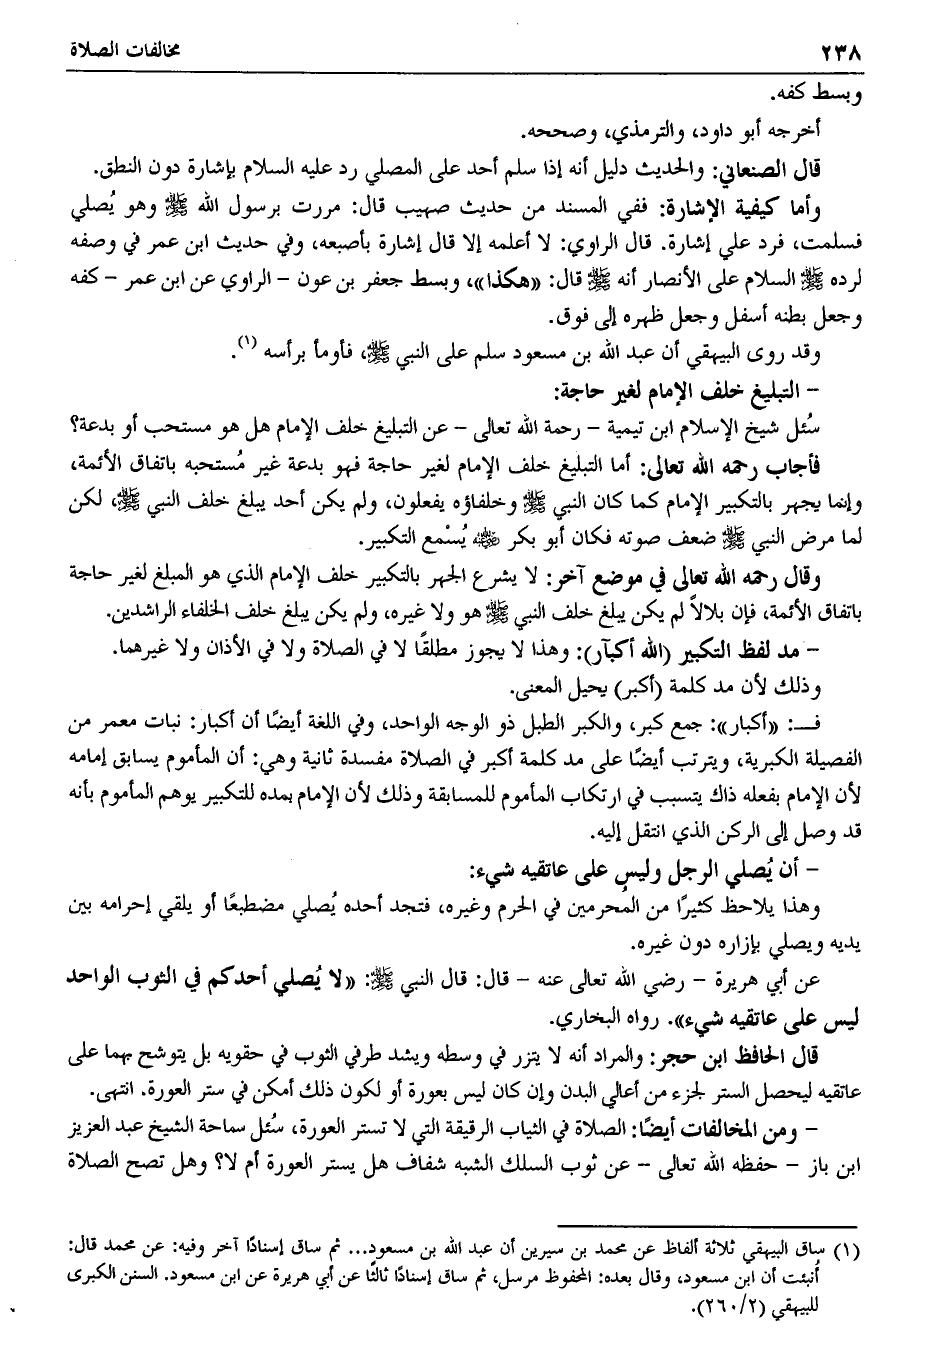 ٢٣٨
مخالفات الصلاة
وبسط كفه.
أخرجه أبو داود، والترمذي، وصححه.
قال الصنعاني: والحديث دليل أنه إذا سلم أحد على المصلي رد عليه السلام بإشارة دون النطق.
وأما كيفية الإشارة: ففي المسند من حديث صهيب قال: مررت برسول الله ﷺ وهو يُصلي
فسلمت، فرد علي إشارة. قال الراوي: لا أعلمه إلا قال إشارة بأصبعه، وفي حديث ابن عمر في وصفه
لرده ﷺ السلام على الأنصار أنه ﷺ قال: «هكذا»، وبسط جعفر بن عون – الراوي عن ابن عمر – كفه
وجعل بطنه أسفل وجعل ظهره إلى فوق.
وقد روى البيهقي أن عبد الله بن مسعود سلم على النبي ﷺ، فأومأ برأسه (١).
– التبليغ خلف الإمام لغير حاجة:
سُئل شيخ الإسلام ابن تيمية – رحمة الله تعالى – عن التبليغ خلف الإمام هل هو مستحب أو بدعة؟
فأجاب رحمه الله تعالى: أما التبليغ خلف الإمام لغير حاجة فهو بدعة غير مُستحبه باتفاق الأئمة،
وإنما يجهر بالتكبير الإمام كما كان النبي ﷺ وخلفاؤه يفعلون، ولم يكن أحد يبلغ خلف النبي ﷺ، لكن
لما مرض النبي ﷺ ضعف صوته فكان أبو بكر ﵁ يُسْمع التكبير.
وقال رحمه الله تعالى في موضع آخر: لا يشرع الجهر بالتكبير خلف الإمام الذي هو المبلغ لغير حاجة
باتفاق الأئمة، فإن بلالاً لم يكن يبلغ خلف النبي ﷺ هو ولا غيره، ولم يكن يبلغ خلف الخلفاء الراشدين.
– مد لفظ التكبير (الله أكبآر): وهذا لا يجوز مطلقًا لا في الصلاة ولا في الأذان ولا غيرهما.
وذلك لأن مد كلمة (أكبر) يحيل المعنى.
فـــ: «أكبار»: جمع كبر، والكبر الطبل ذو الوجه الواحد، وفي اللغة أيضًا أن أكبار: نبات معمر من
الفصيلة الكبرية، ويترتب أيضًا على مد كلمة أكبر في الصلاة مفسدة ثانية وهي: أن المأموم يسابق إمامه
لأن الإمام بفعله ذاك يتسبب في ارتكاب المأموم للمسابقة وذلك لأن الإمام بمده للتكبير يوهم المأموم بأنه
قد وصل إلى الركن الذي انتقل إليه.
– أن يُصلي الرجل وليس على عاتقيه شيء:
وهذا يلاحظ كثيرًا من المحرمين في الحرم وغيره، فتجد أحده يُصلي مضطبعًا أو يلقي إحرامه بين
يديه ويصلي بإزاره دون غيره.
عن أبي هريرة – رضي الله تعالى عنه – قال: قال النبي ﷺ: «لا يُصلي أحدكم في الثوب الواحد
ليس على عاتقيه شيء». رواه البخاري.
قال الحافظ ابن حجر: والمراد أنه لا يتزر في وسطه ويشد طرفي الثوب في حقويه بل يتوشح بهما على
عاتقيه ليحصل الستر لجزء من أعالي البدن وإن كان ليس بعورة أو لكون ذلك أمكن في ستر العورة. انتهى.
– ومن المخالفات أيضًا: الصلاة في الثياب الرقيقة التي لا تستر العورة، سُئل سماحة الشيخ عبد العزيز
ابن باز – حفظه الله تعالى – عن ثوب السلك الشبه شفاف هل يستر العورة أم لا؟ وهل تصح الصلاة
(١) ساق البيهقي ثلاثة ألفاظ عن محمد بن سيرين أن عبد الله بن مسعود... ثم ساق إسنادًا آخر وفيه: عن محمد قال:
أُنبئت أن ابن مسعود، وقال بعده: المحفوظ مرسل، ثم ساق إسنادًا ثالثًا عن أبي هريرة عن ابن مسعود. السنن الكبرى
للبيهقي (٢/٢٦٠).